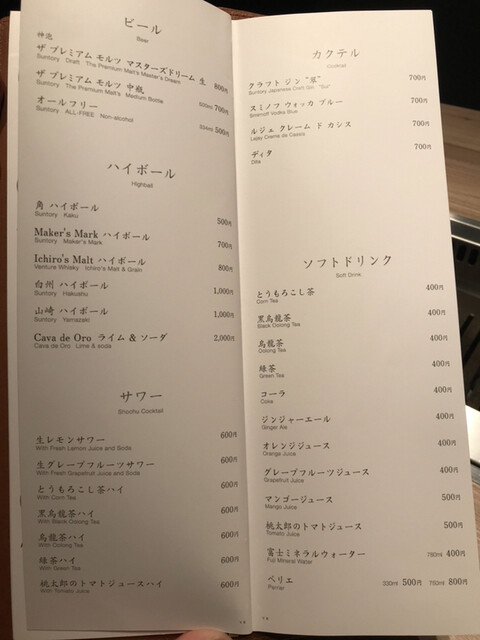 ビール
Beer
神泡
ザ プレミアム モルツ マスターズドリーム 生 800円
Suntory Draft The Premium Malt's Master's Dream
ザ プレミアム モルツ 中瓶 500ml 700円
Suntory The Premium Malt's Medium Bottle
オールフリー 334ml 500円
Suntory ALL-FREE Non-alcohol
ハイボール
Highball
角 ハイボール 500円
Suntory Kaku
Maker's Mark ハイボール 700円
Suntory Maker's Mark
Ichiro's Malt ハイボール 800円
Venture Whisky Ichiro's Malt & Grain
白州 ハイボール 1,000円
Suntory Hakushu
山崎 ハイボール 1,000円
Suntory Yamazaki
Cava de Oro ライム & ソーダ 2,000円
Cava de Oro Lime & soda
サワー
Shochu Cocktail
生レモンサワー 600円
With Fresh Lemon Juice and Soda
生グレープフルーツサワー 600円
With Fresh Grapefruit Juice and Soda
とうもろこし茶ハイ 600円
With Corn Tea
黒烏龍茶ハイ 600円
With Black Oolong Tea
烏龍茶ハイ 600円
With Oolong Tea
緑茶ハイ 600円
With Green Tea
桃太郎のトマトジュースハイ 600円
With Tomato Juice
カクテル
Cocktail
クラフト ジン "翠" 700円
Suntory Japanese Craft Gin "Sui"
スミノフ ウォッカ ブルー 700円
Smirnoff Vodka Blue
ルジェ クレーム ド カシス 700円
Lejay Creme de Cassis
ディタ 700円
Dita
ソフトドリンク
Soft Drink
とうもろこし茶 400円
Corn Tea
黒烏龍茶 400円
Black Oolong Tea
烏龍茶 400円
Oolong Tea
緑茶 400円
Green Tea
コーラ 400円
Coke
ジンジャーエール 400円
Ginger Ale
オレンジジュース 400円
Orange Juice
グレープフルーツジュース 400円
Grapefruit Juice
マンゴージュース 500円
Mango Juice
桃太郎のトマトジュース 500円
Tomato Juice
富士ミネラルウォーター 780ml 400円
Fuji Mineral Water
ペリエ 330ml 500円 750ml 800円
Perrier